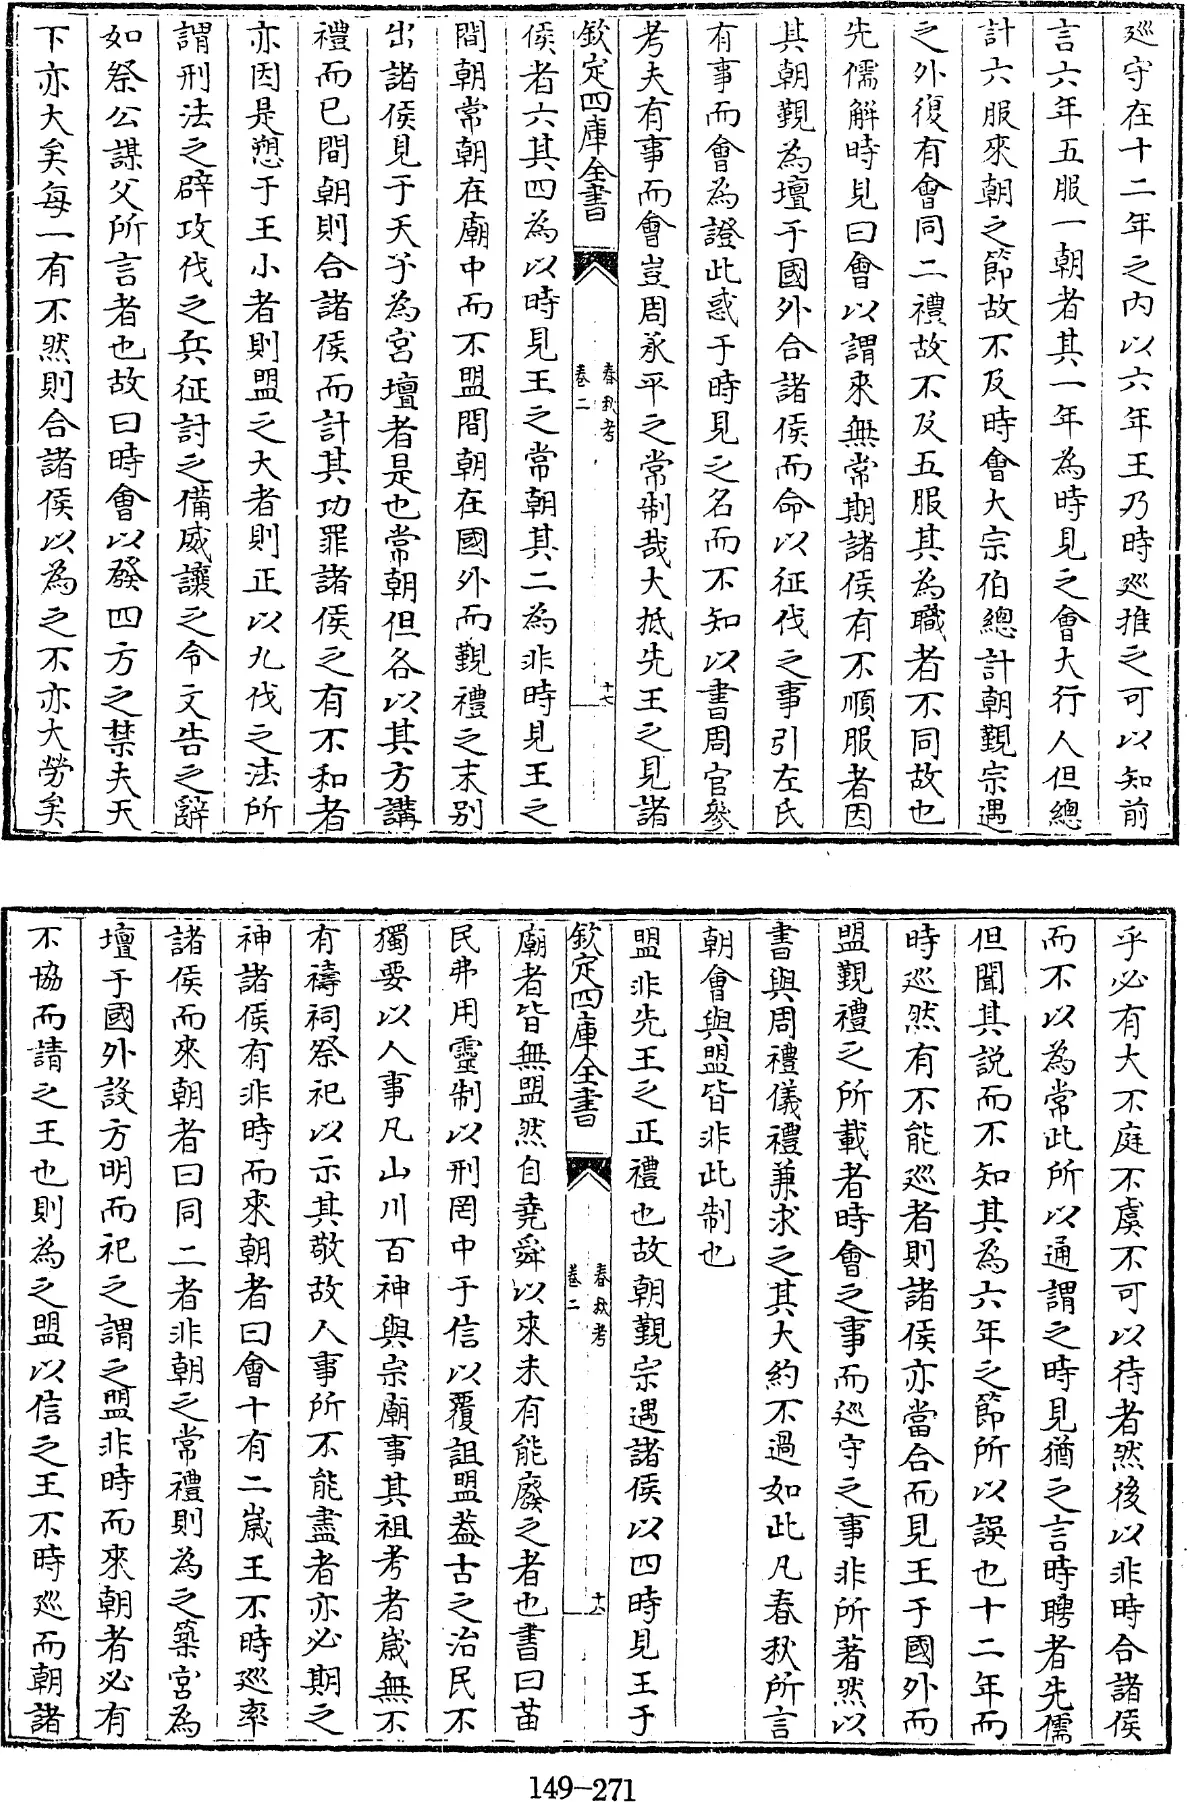 巡守在十二年之内以六年王乃時巡推之可以知前
言六年五服一朝者其一年為時見之會大行人但總
計六服來朝之節故不及時會大宗伯總計朝覲宗遇
之外復有會同二禮故不及五服其為職者不同故也
先儒解時見曰會以謂來無常期諸侯有不順服者因
其朝覲為壇于國外合諸侯而命以征伐之事引左氏
有事而會為證此惑于時見之名而不知以書周官參
考夫有事而會豈周承平之常制哉大抵先王之見諸
欽定四庫全書
春秋考
卷二
十七
侯者六其四為以時見王之常朝其二為非時見王之
間朝常朝在廟中而不盟間朝在國外而覲禮之末别
出諸侯見于天子為宮壇者是也常朝但各以其方講
禮而已間朝則合諸侯而計其功罪諸侯之有不和者
亦因是愬于王小者則盟之大者則正以九伐之法所
謂刑法之辟攻伐之兵征討之備威讓之令文告之辭
如祭公謀父所言者也故曰時會以發四方之禁夫天
下亦大矣每一有不然則合諸侯以為之不亦大勞矣
乎必有大不庭不虞不可以待者然後以非時合諸侯
而不以為常此所以通謂之時見猶之言時聘者先儒
但聞其説而不知其為六年之節所以誤也十二年而
時巡然有不能巡者則諸侯亦當合而見王于國外而
盟覲禮之所載者時會之事而巡守之事非所著然以
書與周禮儀禮兼求之其大約不過如此凡春秋所言
朝會與盟皆非此制也
盟非先王之正禮也故朝覲宗遇諸侯以四時見王于
欽定四庫全書
春秋考
卷二
十八
廟者皆無盟然自堯舜以來未有能廢之者也書曰苗
民弗用靈制以刑罔中于信以覆詛盟葢古之治民不
獨要以人事凡山川百神與宗廟事其祖考者歲無不
有禱祠祭祀以示其敬故人事所不能盡者亦必期之
神諸侯有非時而來朝者曰會十有二歲王不時巡率
諸侯而來朝者曰同二者非朝之常禮則為之築宮為
壇于國外設方明而祀之謂之盟非時而來朝者必有
不協而請之王也則為之盟以信之王不時巡而朝諸
149-271